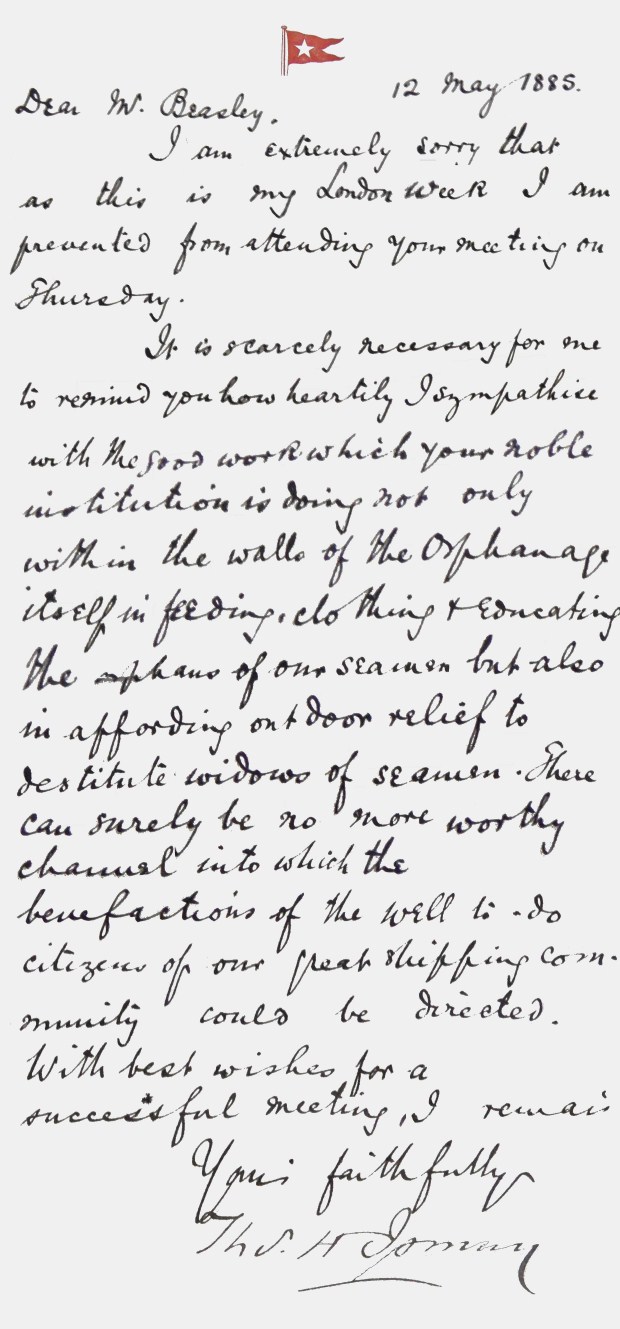 12 May 1885.
Dear Mr. Beasley.
I am extremely sorry that
as this is my London week I am
prevented from attending your meeting on
Thursday.
It is scarcely necessary for me
to remind you how heartily I sympathise
with the good work which your noble
institution is doing not only
within the walls of the Orphanage
itself in feeding, clothing & educating
the orphans of our seamen but also
in affording outdoor relief to
destitute widows of seamen. There
can surely be no more worthy
channel into which the
benefactions of the well to-do
citizens of our great shipping com-
munity could be directed.
With best wishes for a
successful meeting, I remain
Yours faithfully
Thos. H Ismay